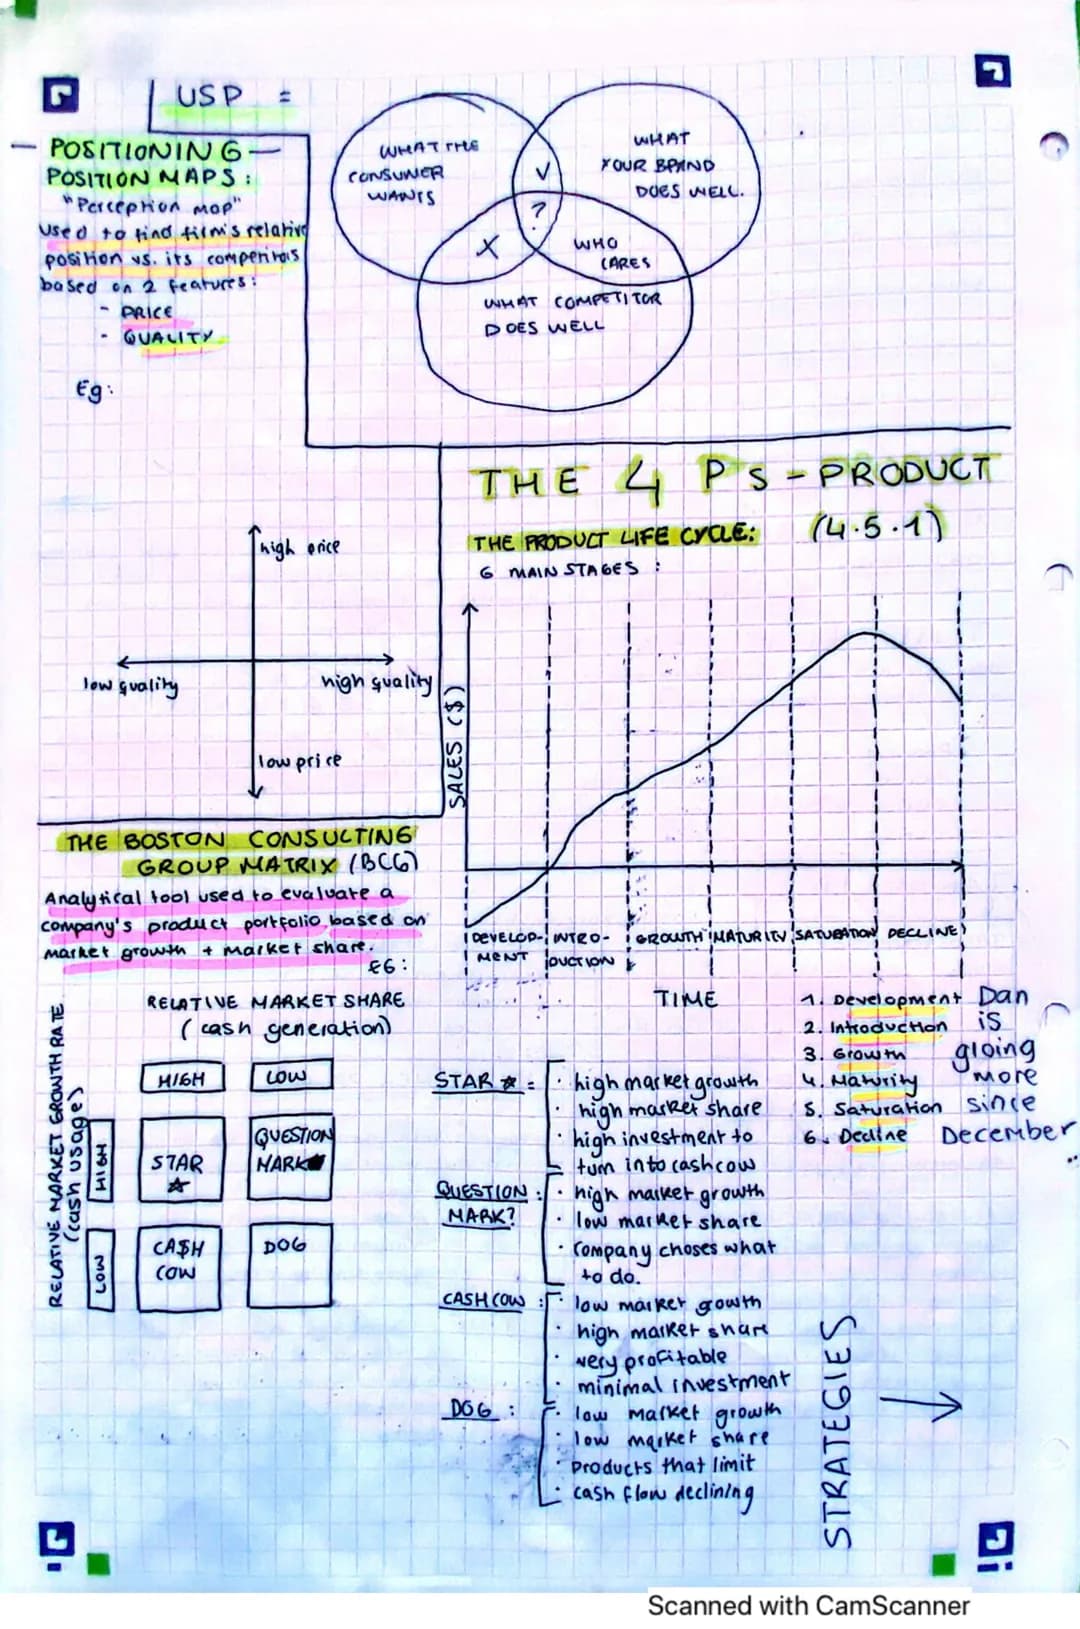 USP =
WHAT THE
CONSUMER
WANTS
WHAT
YOUR BRAND
DOES WELL.
V
?
X
WHO
CARES
WHAT COMPETITOR
DOES WELL
— POSITIONING —
POSITION MAPS :
"Perception map"
used to find firm's relative
position vs. its competitors
based on 2 features:
- PRICE
- QUALITY
Eg:
high price
low quality
high quality
low price
THE 4 P's - PRODUCT
THE PRODUCT LIFE CYCLE: (4.5.1)
6 MAIN STAGES :
SALES ($)
DEVELOP-
MENT
INTRO-
DUCTION
GROWTH
MATURITY
SATURATION
DECLINE
TIME
1. Development Dan
2. Introduction is
3. Growth gloing
4. Maturity more
5. Saturation since
6. Decline December
THE BOSTON CONSULTING
GROUP MATRIX (BCG)
Analytical tool used to evaluate a
company's product portfolio based on
market growth + market share.
EG:
RELATIVE MARKET SHARE
(cash generation)
RELATIVE MARKET GROWTH RATE
(cash usage)
HIGH
LOW
HIGH
STAR
QUESTION
MARK
LOW
CA$H
COW
DOG
STAR =
· high market growth
· high market share
· high investment to
turn into cashcow
QUESTION :
MARK?
· high market growth
· low market share
· company choses what
to do.
CASHCOW :
· low market growth
· high market share
· very profitable
· minimal investment
DOG :
· low market growth
· low market share
· products that limit
· cash flow declining
STRATEGIES →
Scanned with CamScanner